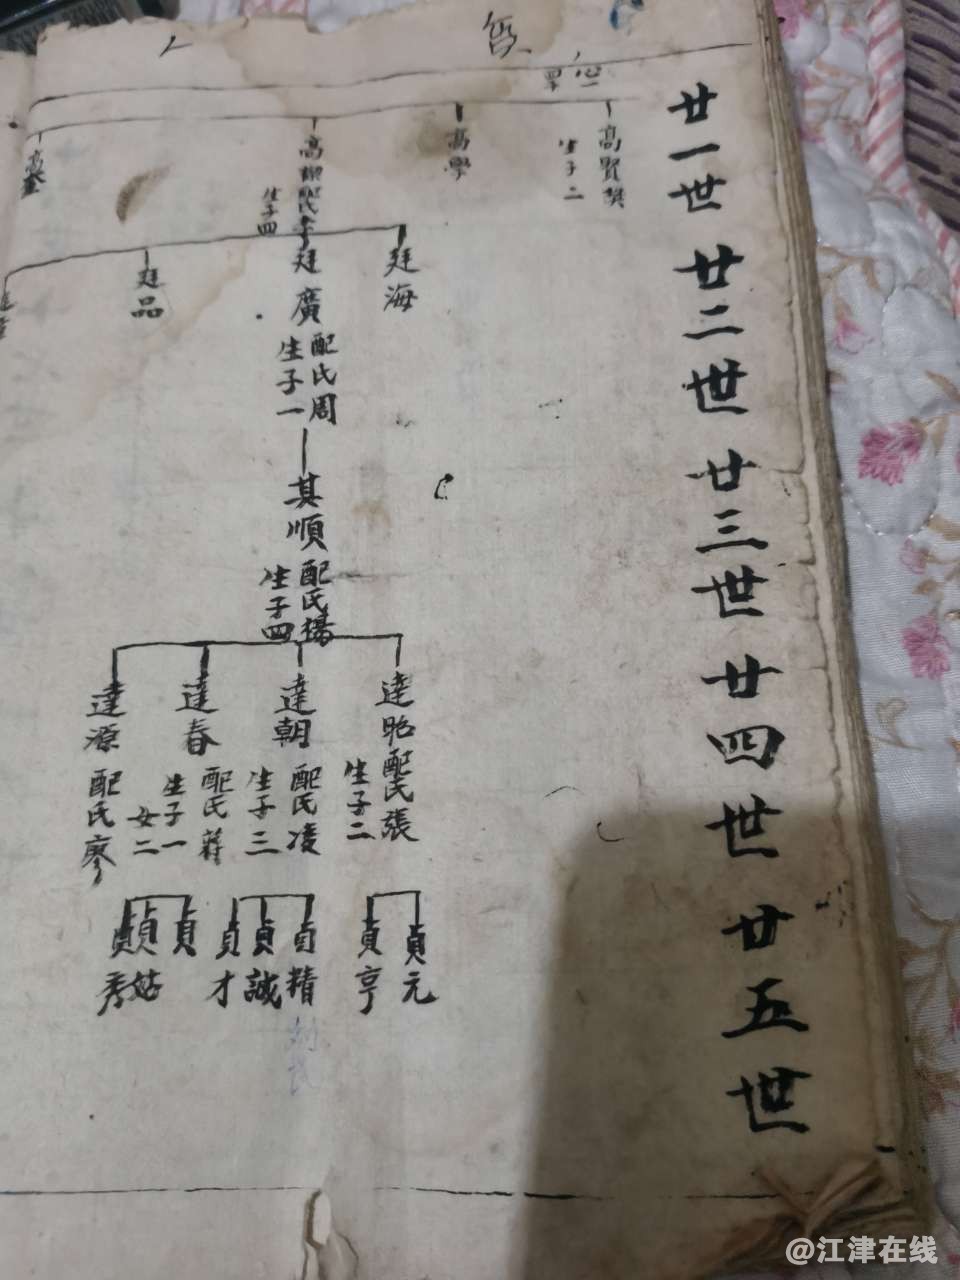 廿一世 廿二世 廿三世 廿四世 廿五世
高賢
生子二
高學
高
配氏李
生子四
廷海
廷廣
配氏周
生子一
廷品
其順
配氏楊
生子四
達昭
配氏張
生子二
達朝
配氏凌
生子三
達春
配氏蔣
生子一
女二
達源
配氏廖
貞元
貞亨
貞精
貞誠
貞才
貞
貞姑
貞秀
@江津在线